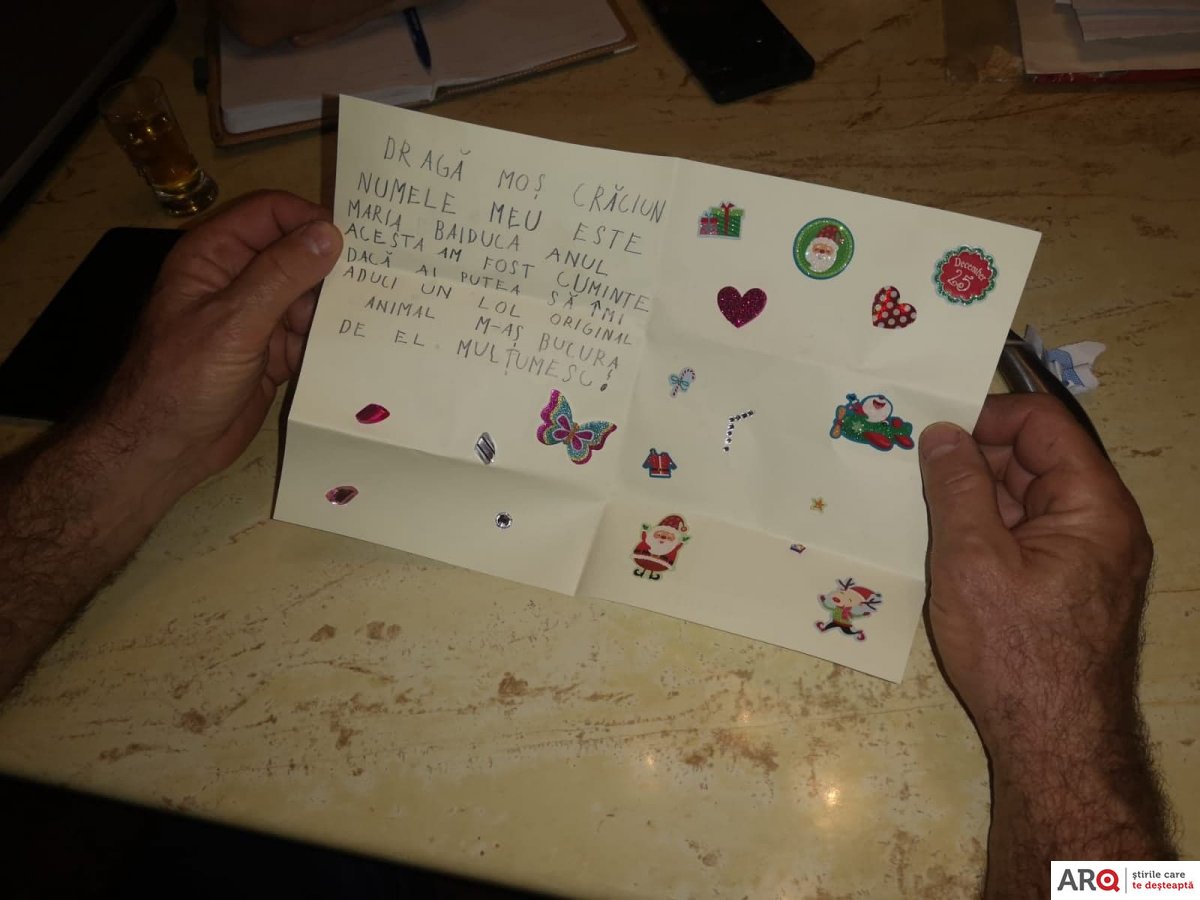 DRAGĂ MOȘ CRĂCIUN
NUMELE MEU ESTE
MARIA BAIDUCA ANUL
ACESTA AM FOST CUMINTE
DACĂ AI PUTEA SĂ ÎMI
ADUCI UN LOL ORIGINAL
ANIMAL M-AȘ BUCURA
DE EL MULȚUMESC!
December
25
ARQ
știrile care
te deșteaptă